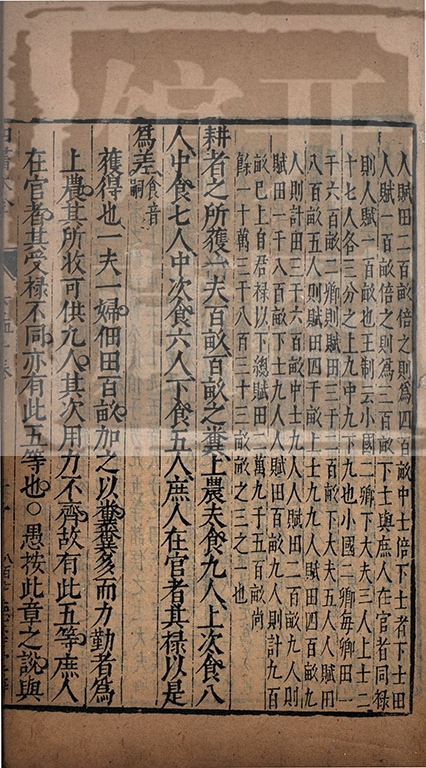 人賦田二百畝倍之則爲四百畝中士倍下士者下士田
人賦一百畝倍之則爲二百畝下士與庶人在官者同祿
則人賦一百畝也王制云小國二卿下大夫三人上士二
十七人各三分之上九中九下九也小國二卿每卿田一
千六百畝二卿則賦田三千二百畝下大夫五人人賦田
八百畝五人則賦田四千畝上士九人人賦田四百畝九
人則計田三千六百畝中士九人人賦田二百畝九人則
賦田一千八百畝下士九人人賦田百畝九人則計九百
畝已上自君祿以下總賦田二萬九千五百畝尚
餘一十萬三千八百三十三畝畝之三之一也
耕者之所獲一夫百畝百畝之糞上農夫食九人上次食八
人中食七人中次食六人下食五人庶人在官者其祿以是
爲差食音嗣
獲得也一夫一婦佃田百畝加之以糞糞多而力勤者爲
上農其所收可供九人其次用力不齊故有此五等庶人
在官者其受祿不同亦有此五等也○愚按此章之說與